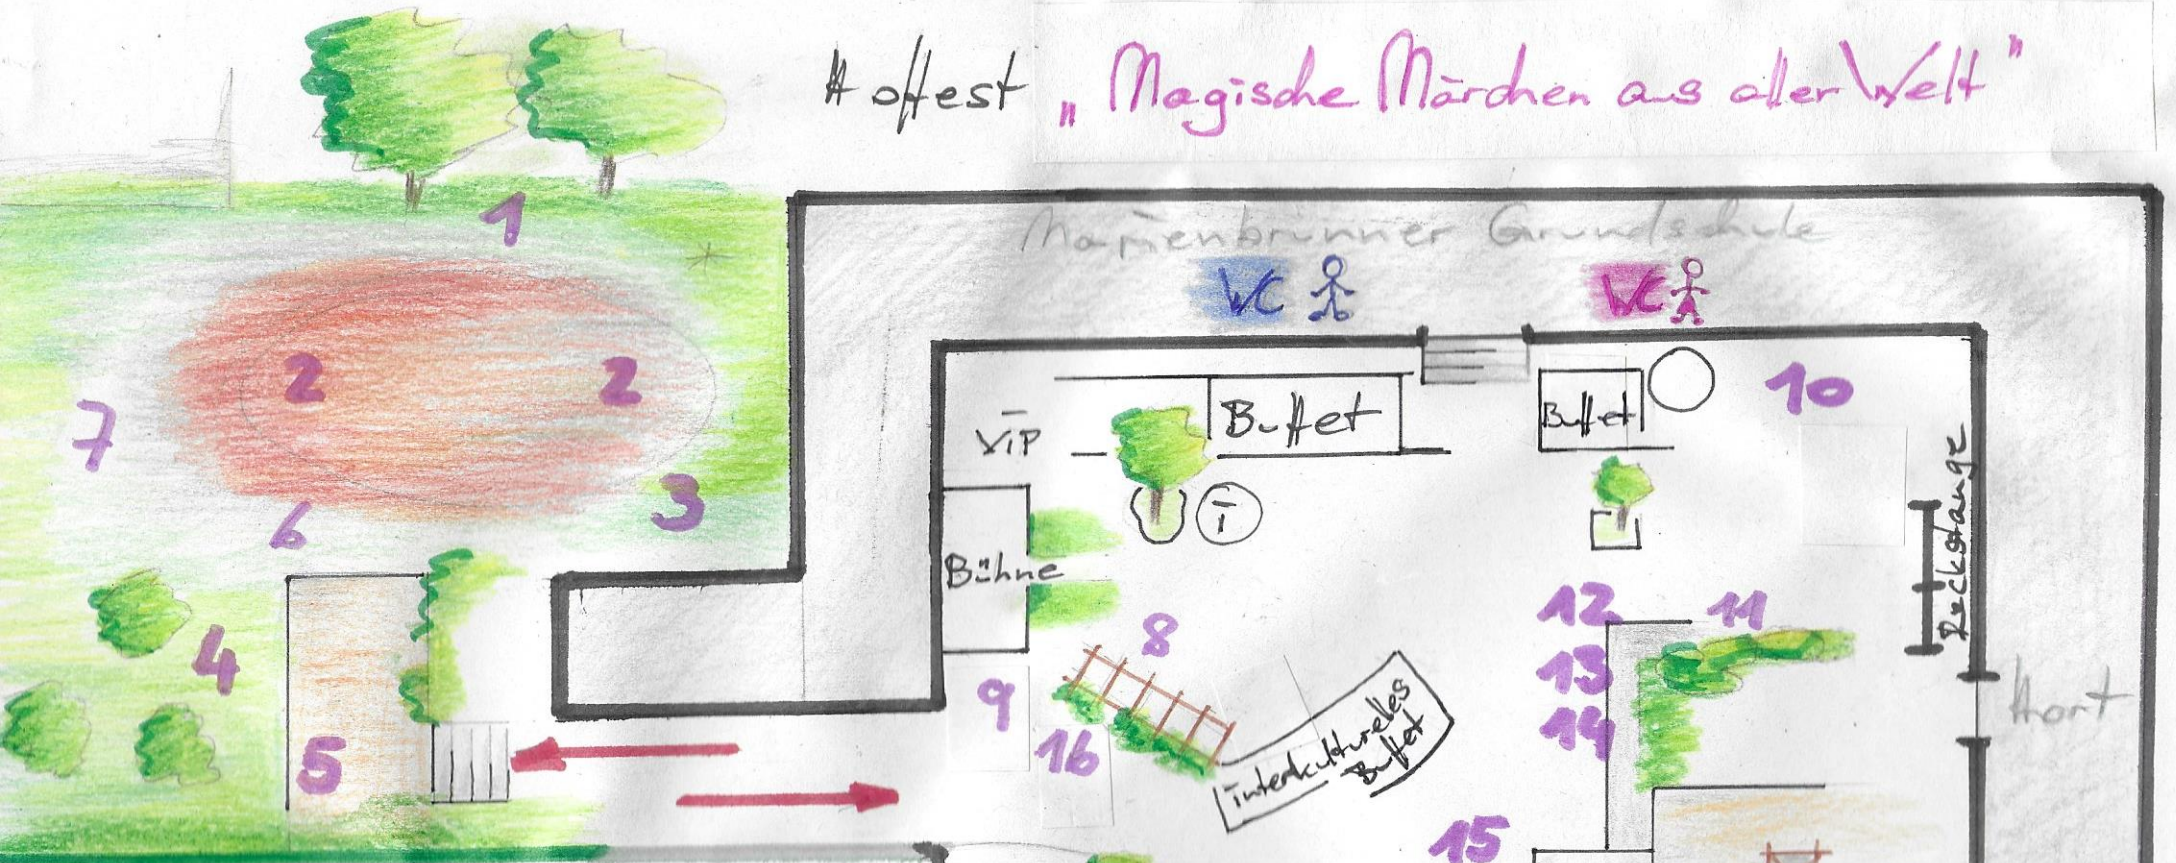 Hoffest „Magische Märchen aus aller Welt"
Marienbrunner Grundschule
WC
WC
1
2
2
3
4
5
6
7
VIP
Buffet
Buffet
10
i
Bühne
Reckstange
8
9
16
interkulturelles
Buffet
12
11
13
14
15
Hort